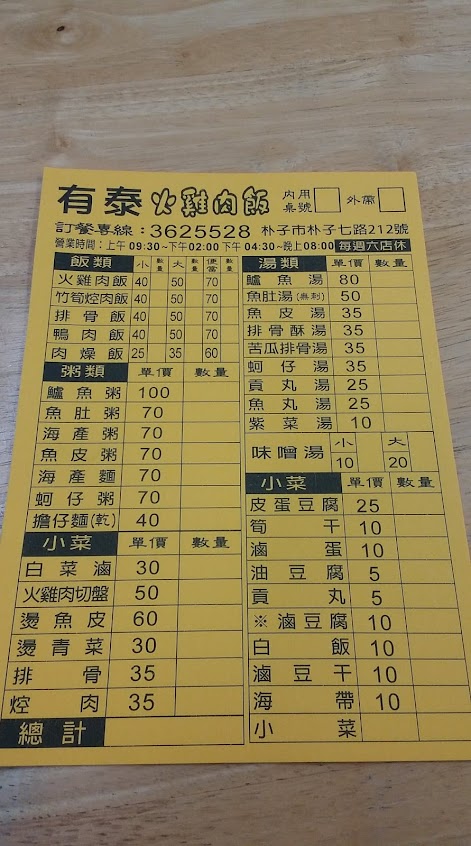 有泰 火雞肉飯 內用桌號 外帶
訂餐專線：3625528 朴子市朴子七路212號
營業時間：上午 09:30~下午02:00 下午 04:30~晚上08:00 每週六店休
飯類 小 數量 大 數量 便當 數量
火雞肉飯 40 50 70
竹筍焢肉飯 40 50 70
排骨飯 40 50 70
鴨肉飯 40 50 70
肉燥飯 25 35 60
粥類 單價 數量
鱸魚粥 100
魚肚粥 70
海產粥 70
魚皮粥 70
海產麵 70
蚵仔粥 70
擔仔麵(乾) 40
小菜 單價 數量
白菜滷 30
火雞肉切盤 50
燙魚皮 60
燙青菜 30
排骨 35
焢肉 35
總計
湯類 單價 數量
鱸魚湯 80
魚肚湯(無刺) 50
魚皮湯 35
排骨酥湯 35
苦瓜排骨湯 35
蚵仔湯 35
貢丸湯 25
魚丸湯 25
紫菜湯 10
味噌湯 小 10 大 20
小菜 單價 數量
皮蛋豆腐 25
筍干 10
滷蛋 10
油豆腐 5
貢丸 5
※滷豆腐 10
白飯 10
滷豆干 10
海帶 10
小菜